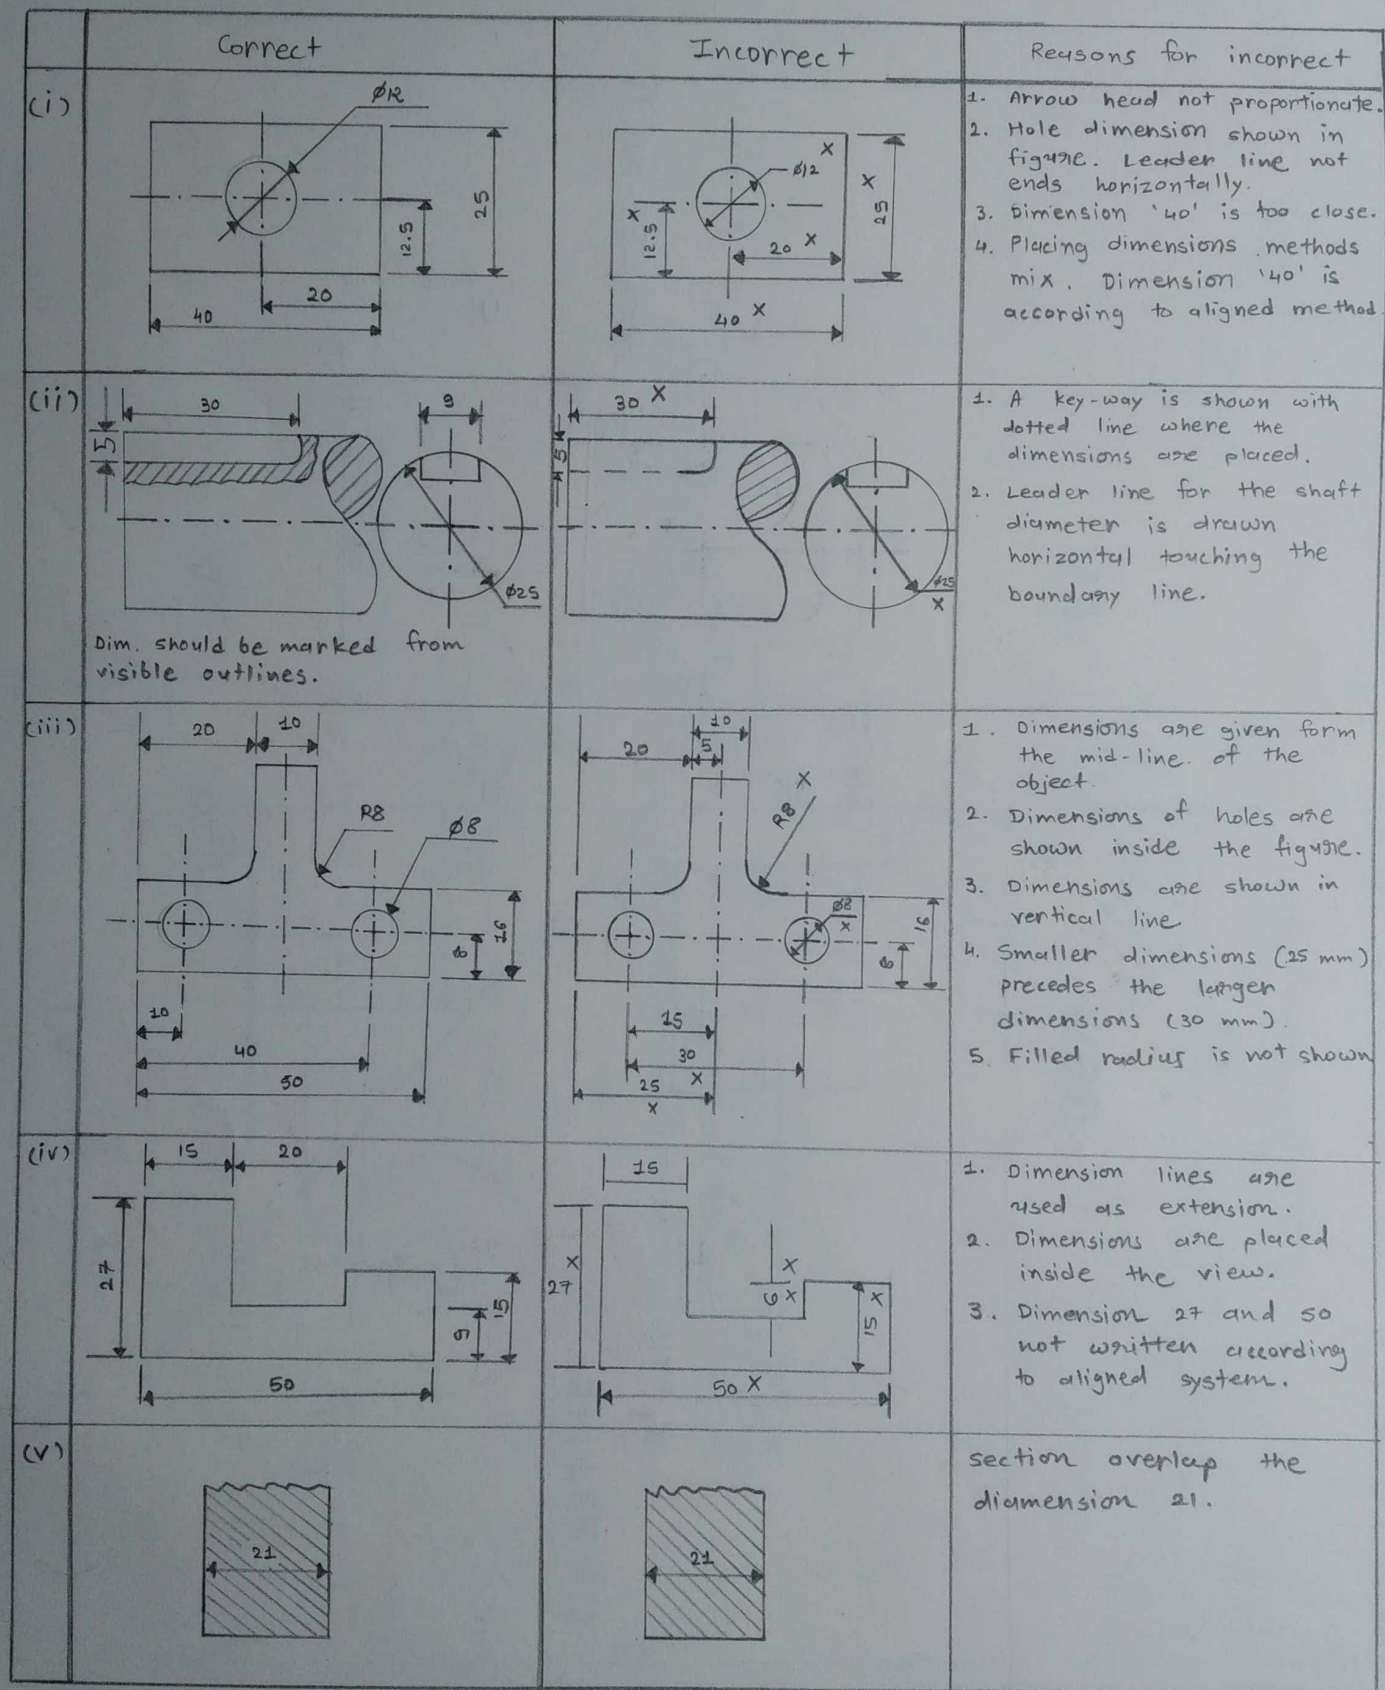 Correct
Incorrect
Reasons for incorrect
(i)
Ø12
25
12.5
20
40
Ø12
25 X
X
X
12.5
20 X
40 X
1. Arrow head not proportionate.
2. Hole dimension shown in
figure. Leader line not
ends horizontally.
3. Dimension '40' is too close.
4. Placing dimensions methods
mix. Dimension '40' is
according to aligned method.
(ii)
30
9
5
Ø25
Dim. should be marked from
visible outlines.
30 X
5
Ø25
X
1. A key-way is shown with
dotted line where the
dimensions are placed.
2. Leader line for the shaft
diameter is drawn
horizontal touching the
boundary line.
(iii)
20
10
R8
Ø8
16
8
10
40
50
10
5
20
R8 X
Ø8
X
16
8
15
30
X
25
X
1. Dimensions are given form
the mid-line. of the
object.
2. Dimensions of holes are
shown inside the figure.
3. Dimensions are shown in
vertical line
4. Smaller dimensions (25 mm)
precedes the larger
dimensions (30 mm)
5. Filled radius is not shown
(iv)
15
20
27
15
9
50
15
X
27
X
6 X
15 X
50 X
1. Dimension lines are
used as extension.
2. Dimensions are placed
inside the view.
3. Dimension 27 and 50
not written according
to aligned system.
(v)
21
21
section overlap the
diamension 21.